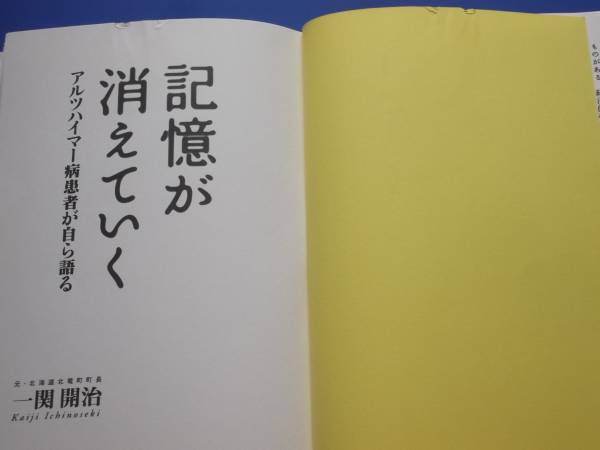 記憶が
消えていく
アルツハイマー病患者が自ら語る
元・北海道北竜町町長
一関 開治
Kaiji Ichinoseki
ものがある